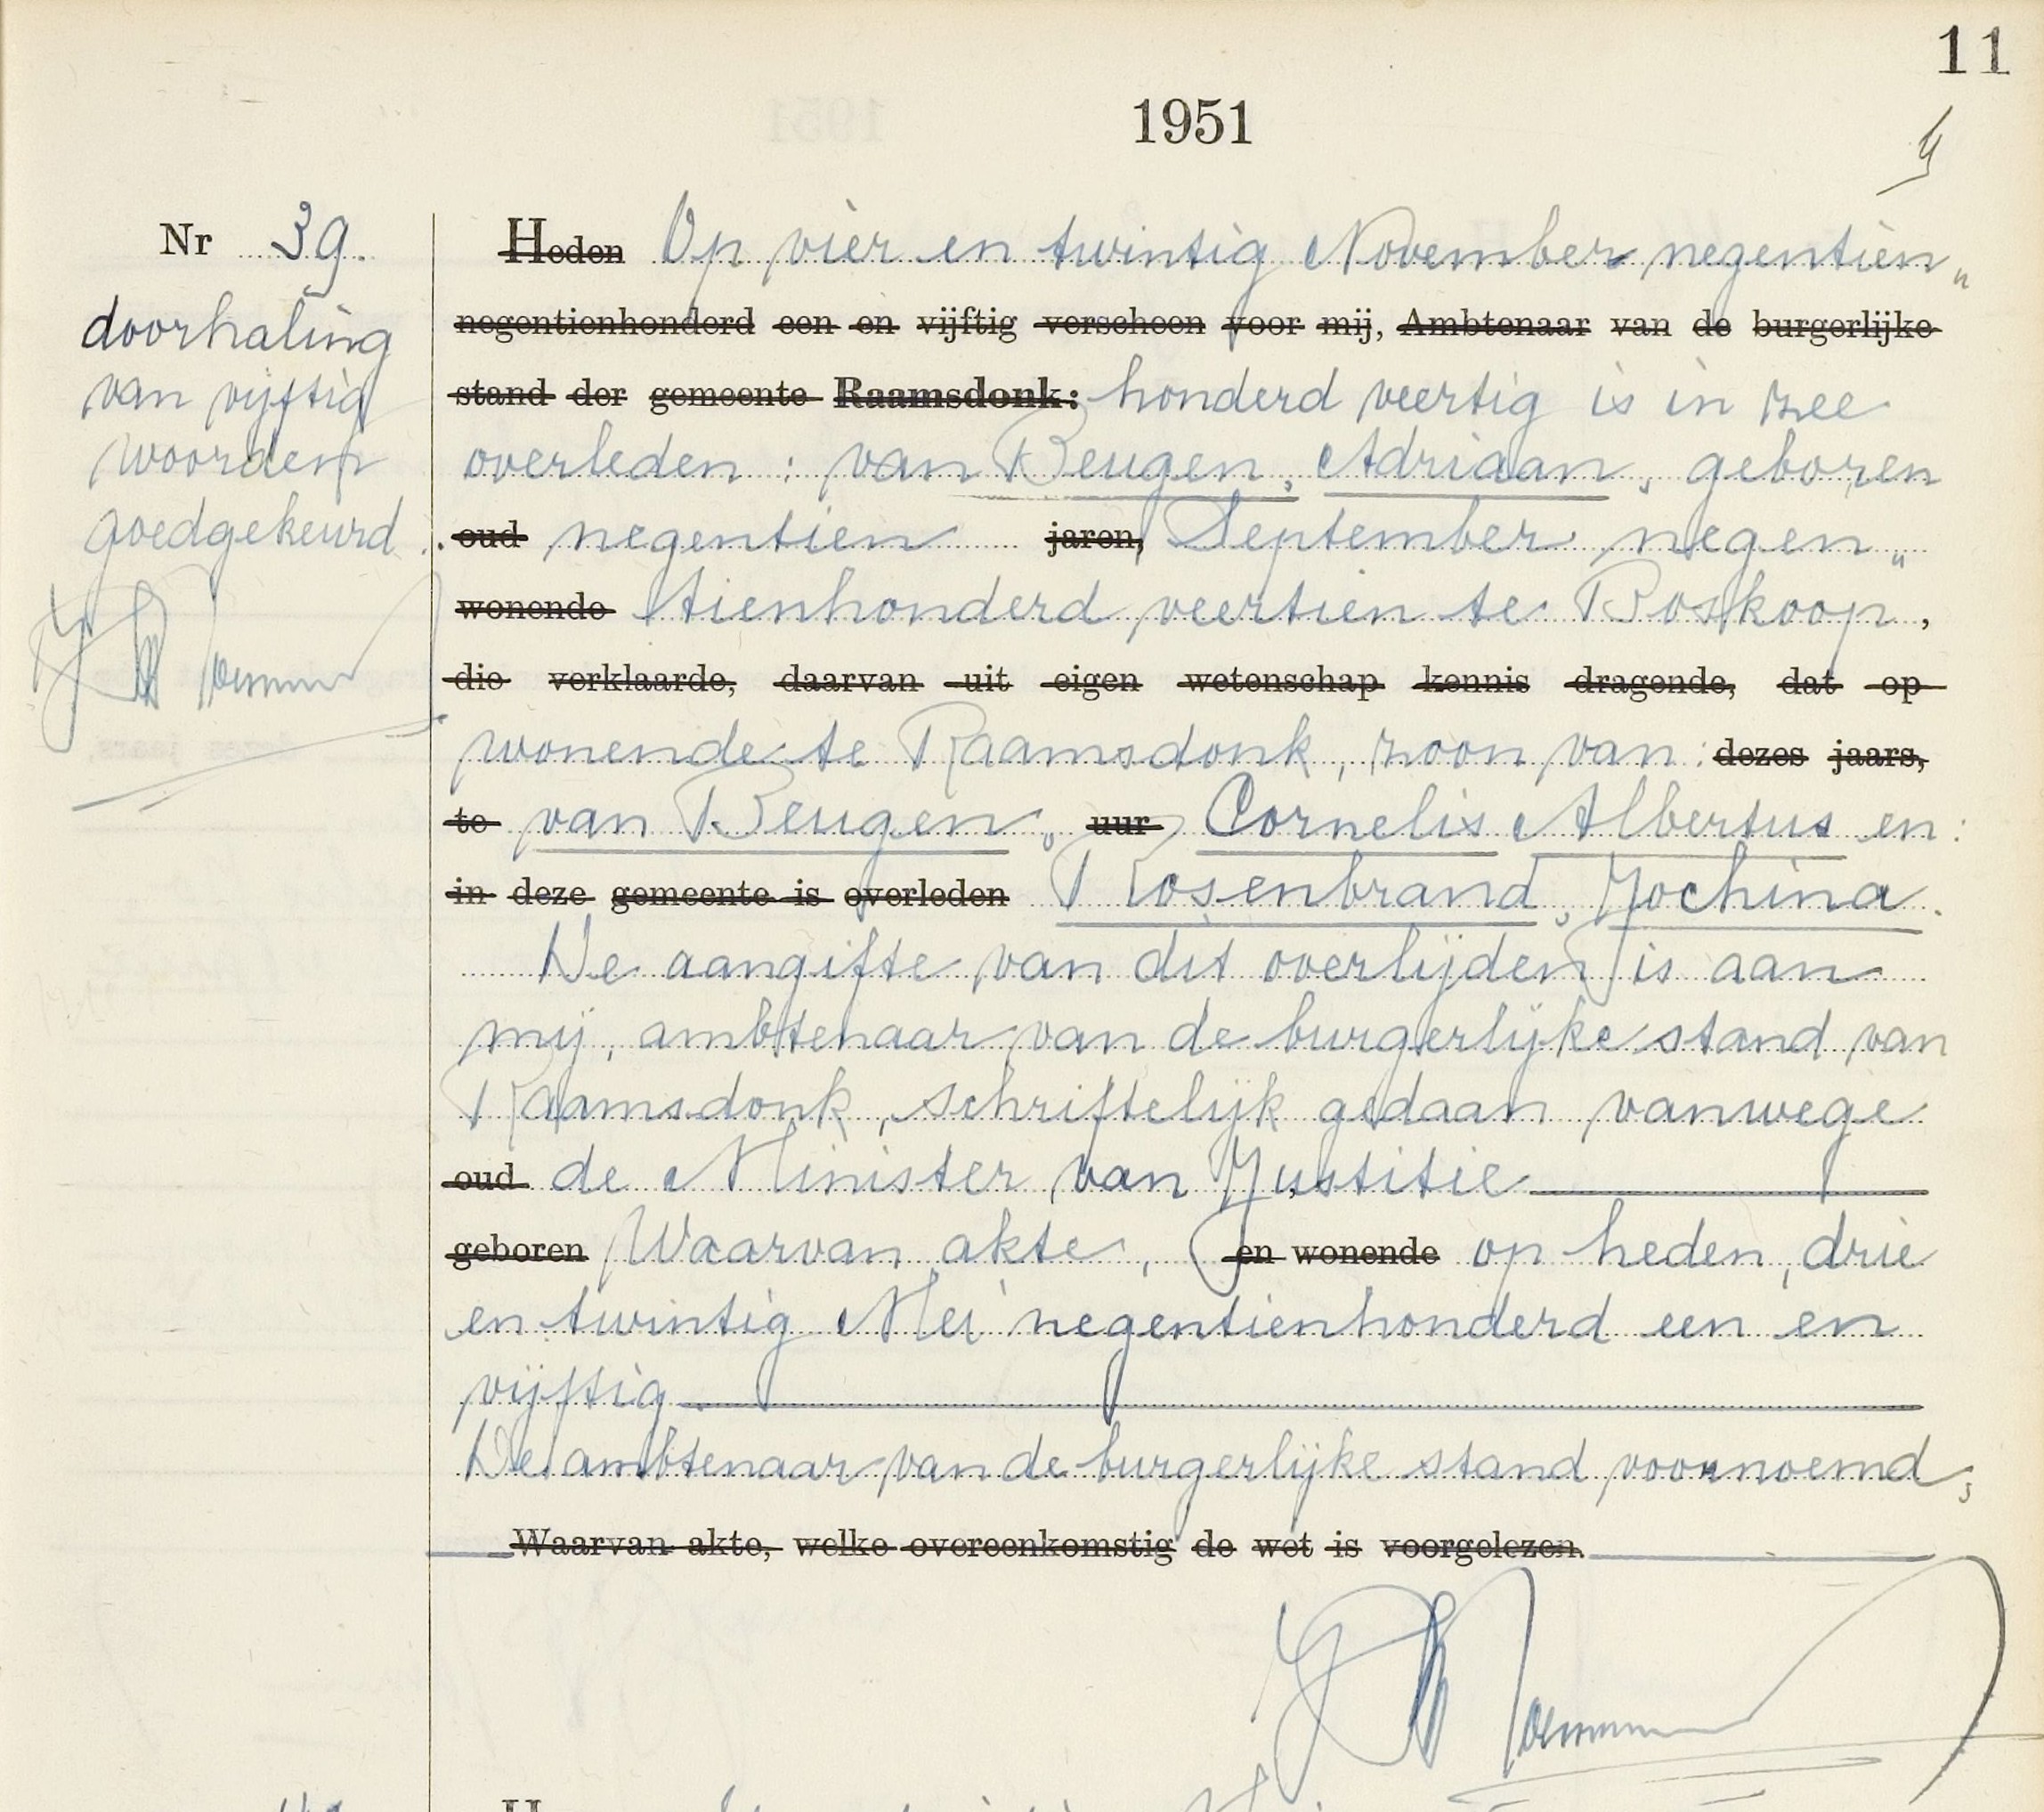 11
1951
Nr 39.
doorhaling
van vijftig
woorden
goedgekeurd.
Heden Op vier en twintig November negentien„
negentienhonderd een en vijftig verscheen voor mij, Ambtenaar van de burgerlijke
stand der gemeente Raamsdonk: honderd veertig is in zee
overleden : van Beugen, Adriaan, geboren
oud negentien jaren, September negen„
wonende tienhonderd veertien te Boskoop,
die verklaarde, daarvan uit eigen wetenschap kennis dragende, dat op
wonende te Raamsdonk, zoon van : dezes jaars,
te van Beugen, uur Cornelis Albertus en :
in deze gemeente is overleden Rosenbrand, Jochina.
De aangifte van dit overlijden is aan
mij, ambtenaar van de burgerlijke stand van
Raamsdonk, schriftelijk gedaan vanwege
oud de Minister van Justitie
geboren Waarvan akte, en wonende op heden, drie
en twintig Mei negentienhonderd een en
vijftig
De ambtenaar van de burgerlijke stand voornoemd,
Waarvan akte, welke overeenkomstig de wet is voorgelezen.